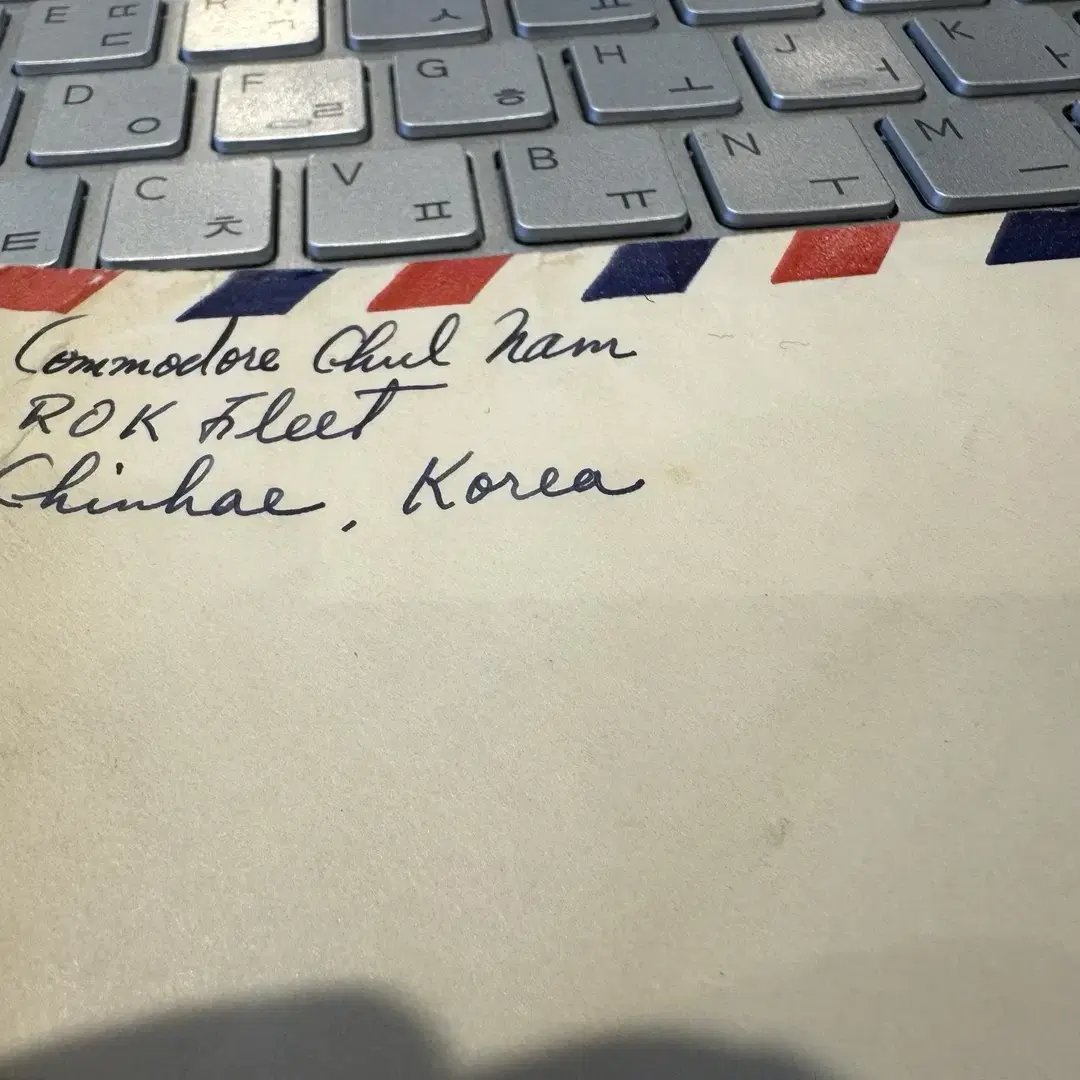 E ㄸ ㄷ R ㄱ ㅅ ㅛ
D ㅇ F ㄹ G ㅎ H ㅗ J ㅓ K ㅏ
ㅌ C ㅊ V ㅍ B ㅠ N ㅜ M ㅡ
Commodore Chul Nam
ROK Fleet
Chinhae, Korea